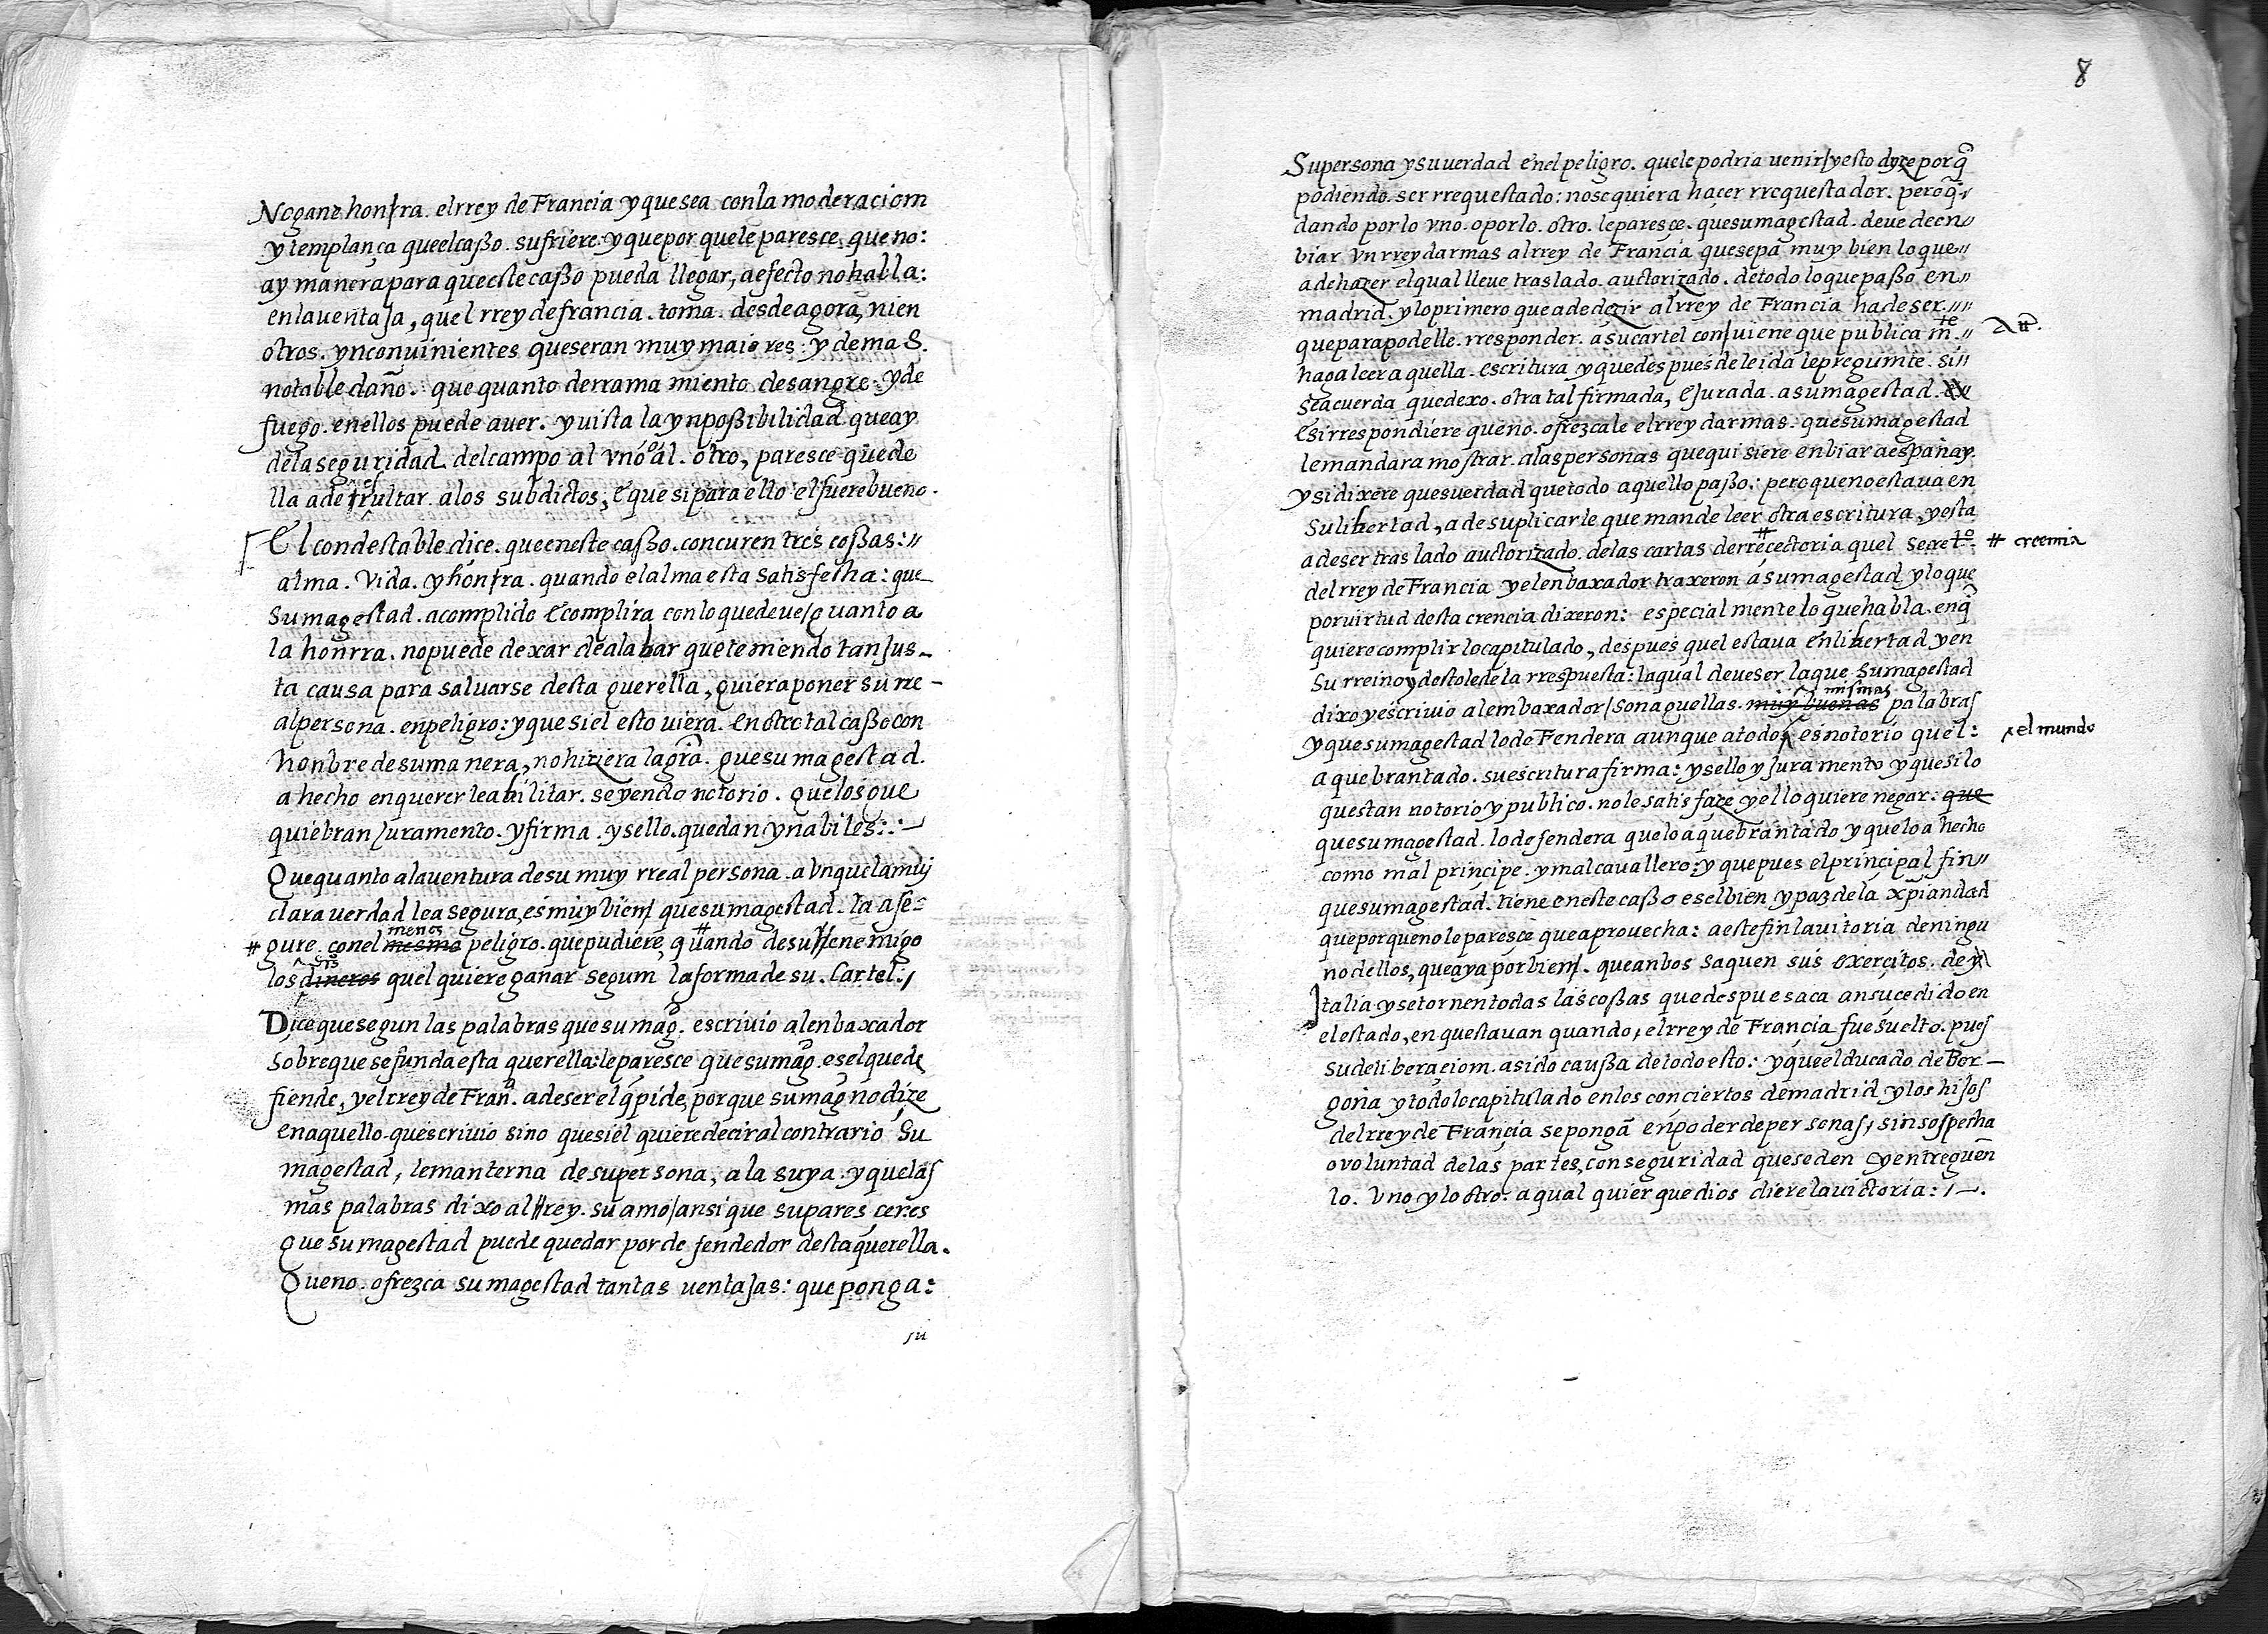 No gane honrra. el rrey de Francia y que sea con la moderaciom
y templança que el caßo. sufriere. y que por que le paresce. que no:
ay manera para que este caßo pueda llegar, a efecto no habla:
en la ventaja, quel rrey de francia. toma. desde agora, ni en
otros. ynconuinientes que seran muy maiores: y de mas.
notable daño. que quanto derrama miento de sangre. y de
fuego. en ellos puede aver. y uista la ynpoßibilidad. que ay
de la seguridad. del campo al vno o al. otro, paresce que de
lla a de rresultar a los subdictos, e que si para ello el fuere bueno.
El condestable dice. que en este caßo. concuren tres coßas: //
alma. vida. y honrra. quando el alma esta satisfecha: que
Su magestad. a complido e complira con lo que deve / quanto a
la honrra. no puede dexar de alabar que teniendo tan Jus-
ta causa para saluarse desta querella, quiera poner su rre-
al persona. en peligro: y que si el estoviera. en otro tal caßo con
honbre de su manera, no hiziera la gr̄a. que su magestad.
a hecho en querer le abilitar. seyendo notorio. que los que
quiebran Juramento. y firma. y sello. quedan ynabiles: : —
Que quanto a la ventura de su muy rreal persona. a vnque la muy
clara verdad le asegura, es muy bien / que su magestad. la ase=
# gure. con el mesmo menos peligro. que pudiere, quando de su enemigo
los dineros quel quiere ganar segum la forma de su. Cartel: /
Dice que segun las palabras que su mag. escriuio al enbaxador
sobre que se funda esta querella: le paresce que su mag. es el que de
fiende, y el rrey de Fran. a de ser el q̄ pide, por que su mag no dize
en aquello que scriuio sino que si el quiere decir al contrario Su
magestad, le manterna de su persona, a la suya. y que las
mas palabras dixo al rrey. su amo / ansi que su paresçer es
que su magestad puede quedar por de fendedor desta querella.
Que no. ofrezca su magestad tantas ventaJas: que ponga:
su
8
Su persona y su uerdad en el peligro. que le podria uenir / y esto dyze por q̄
podiendo. ser rrequestado: no se quiera haçer rrequestador. pero q̄
dando por lo vno. o por lo. otro. le paresce. que su magestad. deve de en //
biar. vn rrey darmas al rrey de Francia que sepa muy bien lo que //
a de hazer el qual lleve traslado. auctorizado. de todo lo que paßo en //
madrid. y lo primero que a de dezir al rrey de Francia ha de ser. //
que para podelle. rresponder. a su cartel conuiene que publica m̄te. //
haga leer a quella. escritura y que despues de leida le pregumte. si //
se acuerda que dexo. otra tal firmada, e Jurada. a su magestad.
e si rrespondiere que no. ofrezcale el rrey darmas. que su magestad
le mandara mostrar. a las personas que quisiere enbiar a españa y.
y si dixere que s uerdad que todo aquello paßo: pero que no estaua en
Su libertad, a de suplicarle que mande leer otra escritura, y esta
a de ser traslado auctorizado. de las cartas de rrecectoria quel secretº # creemia
del rrey de Francia y el enbaxador traxeron a su magestad y lo que
por uirtud desta crencia dixeron: especial mente lo que habla. en q̄
quiere complir lo capitulado, despues quel estaua en libertad y en
Su rreino y desto le de la rrespuesta: la qual deve ser la que Su magestad
dixo y escriuio al embaxador / son aquellas. muy buenas mismas palabras
y que su magestad lo defendera aunque a todo es notorio quel: el mundo
a quebrantado. su escritura firma: y sello y Juramento y que si lo
que stan notorio y publico. no le satisfaze y ello quiere negar: que
que su magestad. lo defendera que lo a quebrantado y que lo a hecho
como mal principe. y mal cauallero: y que pues el principal fin //
que su magestad. tiene en este caßo es el bien y paz de la xp̄iandad
que por que no le paresce que aprouecha: a este fin la uitoria de ningu
no dellos, que aya por bien. que anbos saquen sus exerçitos. de y
talia y se tornen todas las coßas que despues aca an suçedido en
el estado, en que stauan quando, el rrey de Francia fue suelto. pues
su deliberaçiom. a sido caußa de todo esto: y que el ducado de Bor-
goña y todo lo capitulado en los conciertos de madrid y los hiJos
del rrey de Francia se pongā en poder de personas, sin sospecha
o voluntad de las partes, con seguridad que se den y entreguen
lo. vno y lo otro. a qual quier que dios diere la victoria: / —.